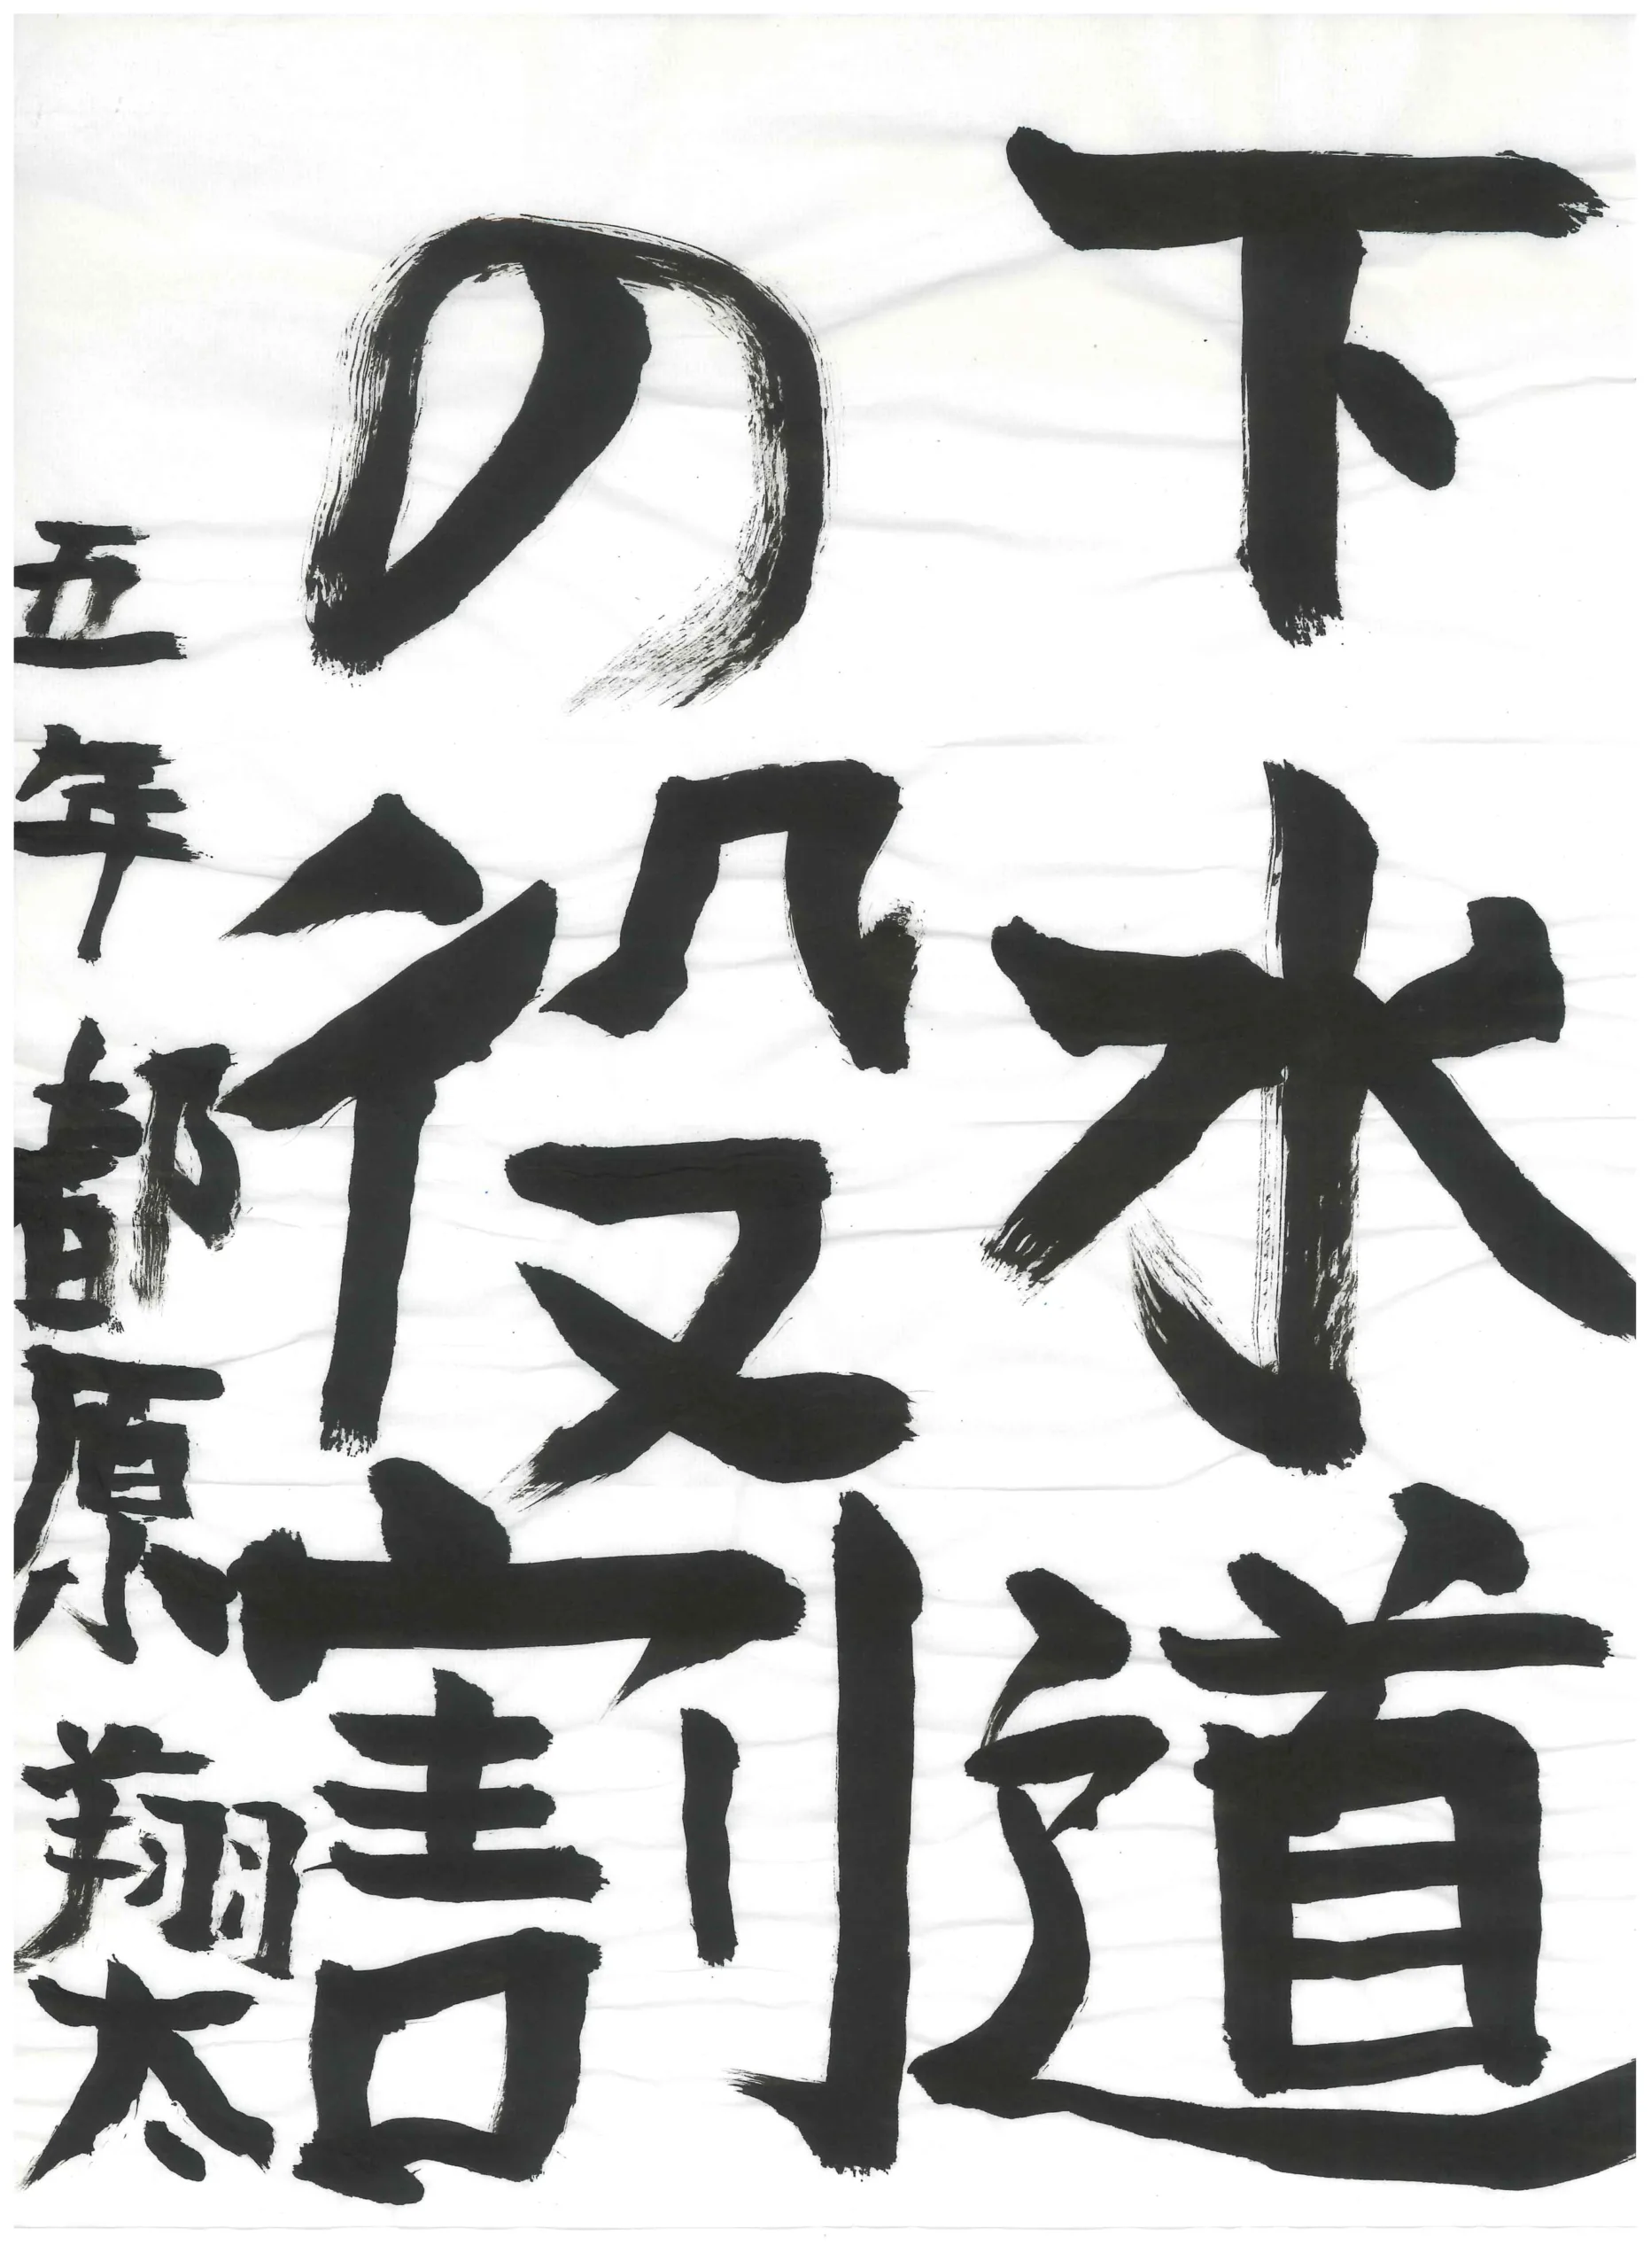 下水道
の役割
五年 都原 翔太